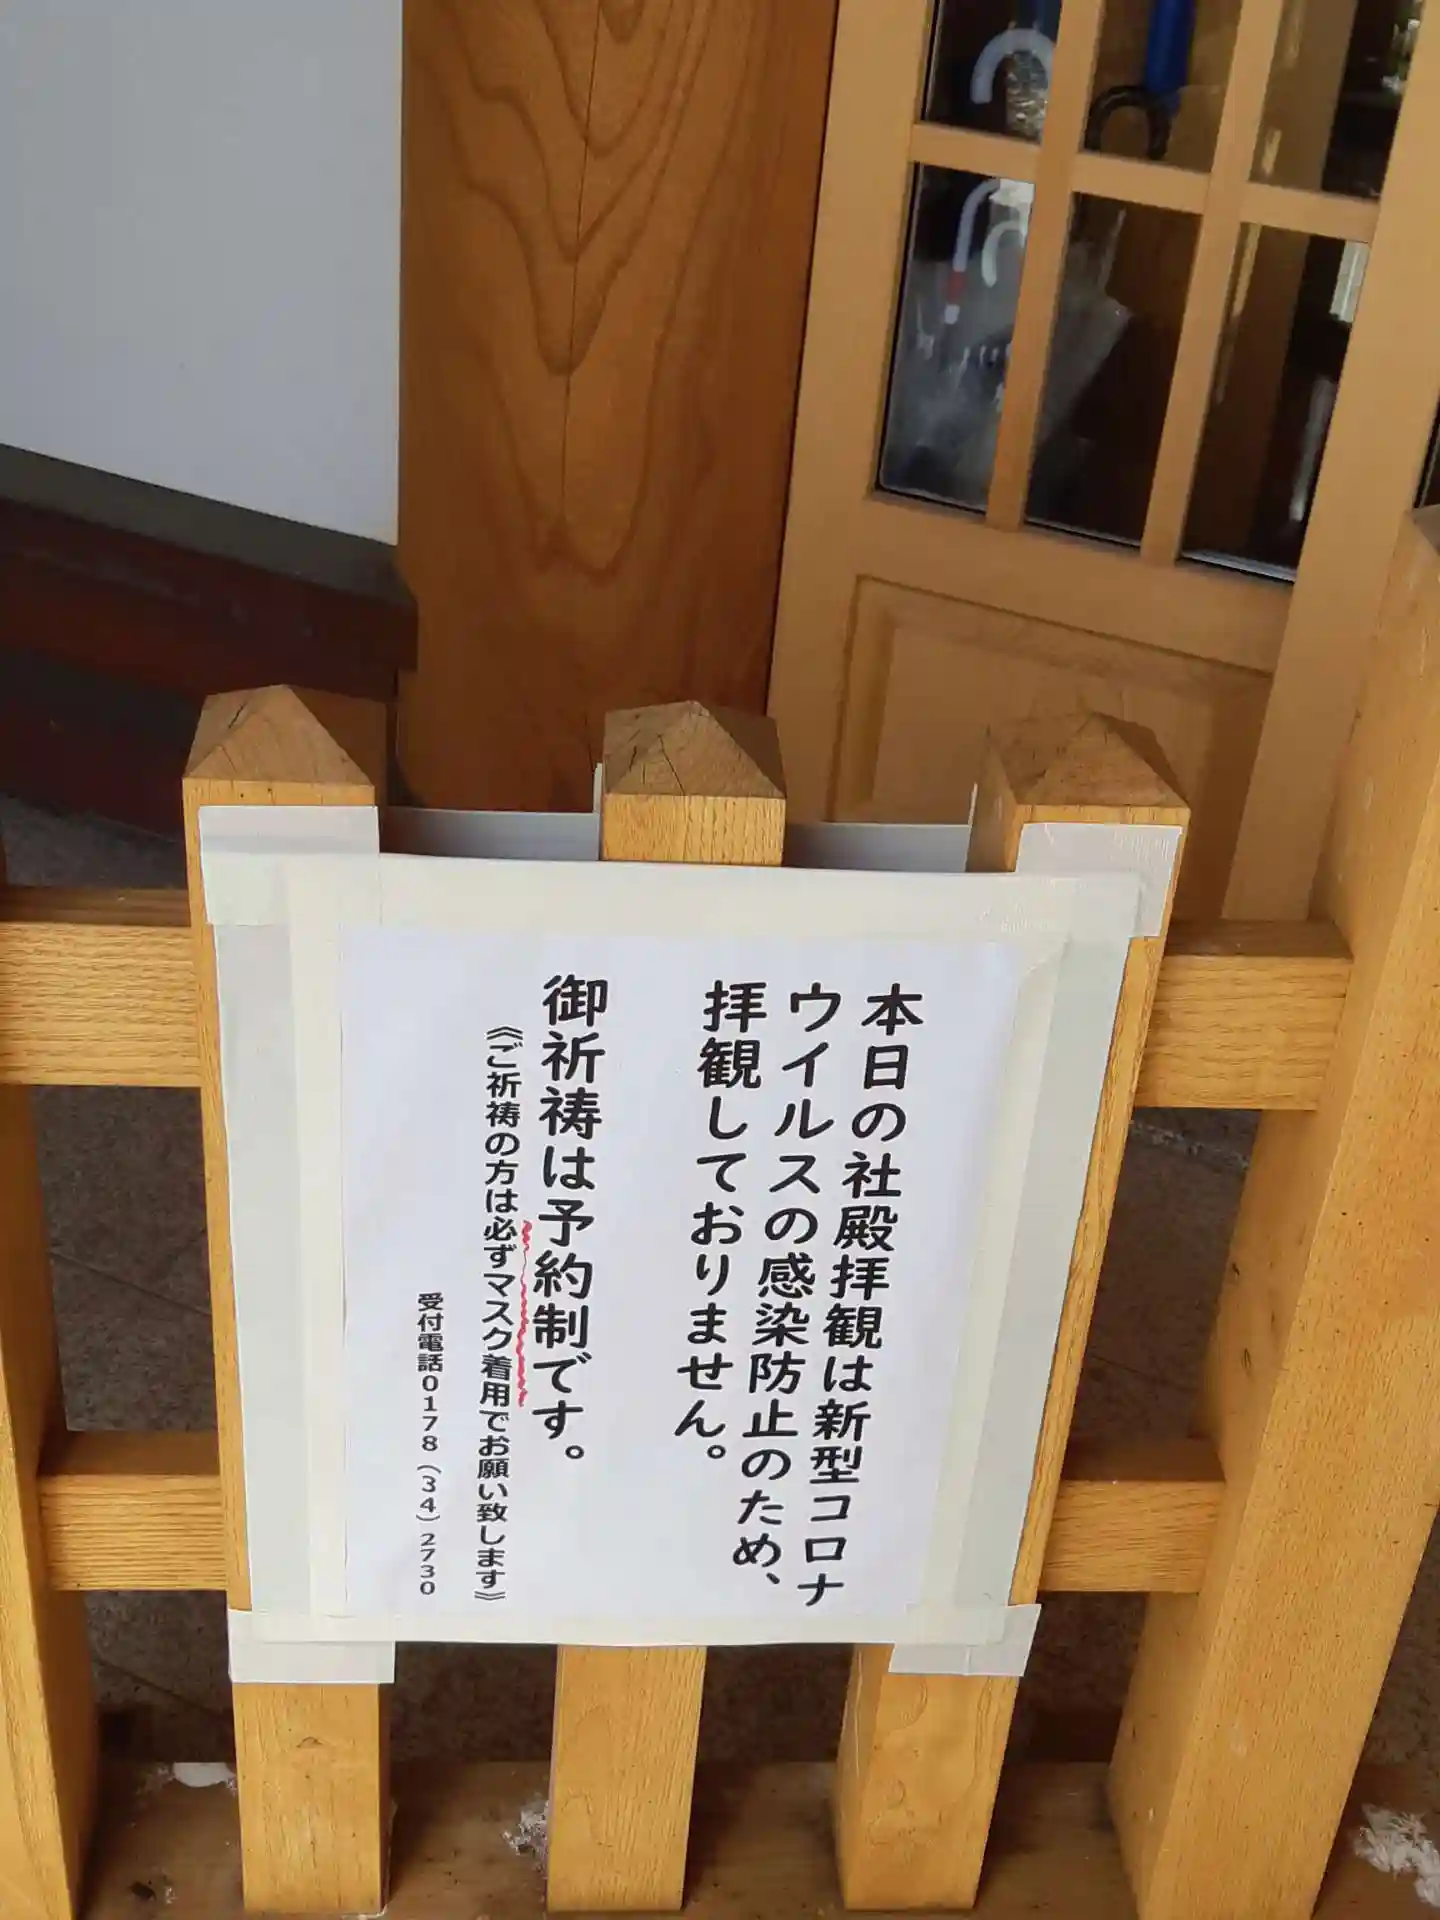 本日の社殿拝観は新型コロナ
ウイルスの感染防止のため、
拝観しておりません。
御祈祷は予約制です。
《ご祈祷の方は必ずマスク着用でお願い致します》
受付電話0178（34）2730